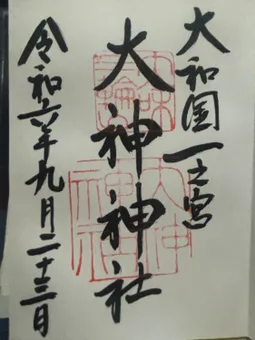 大和國一之宮
大神神社
令和六年九月二十三日